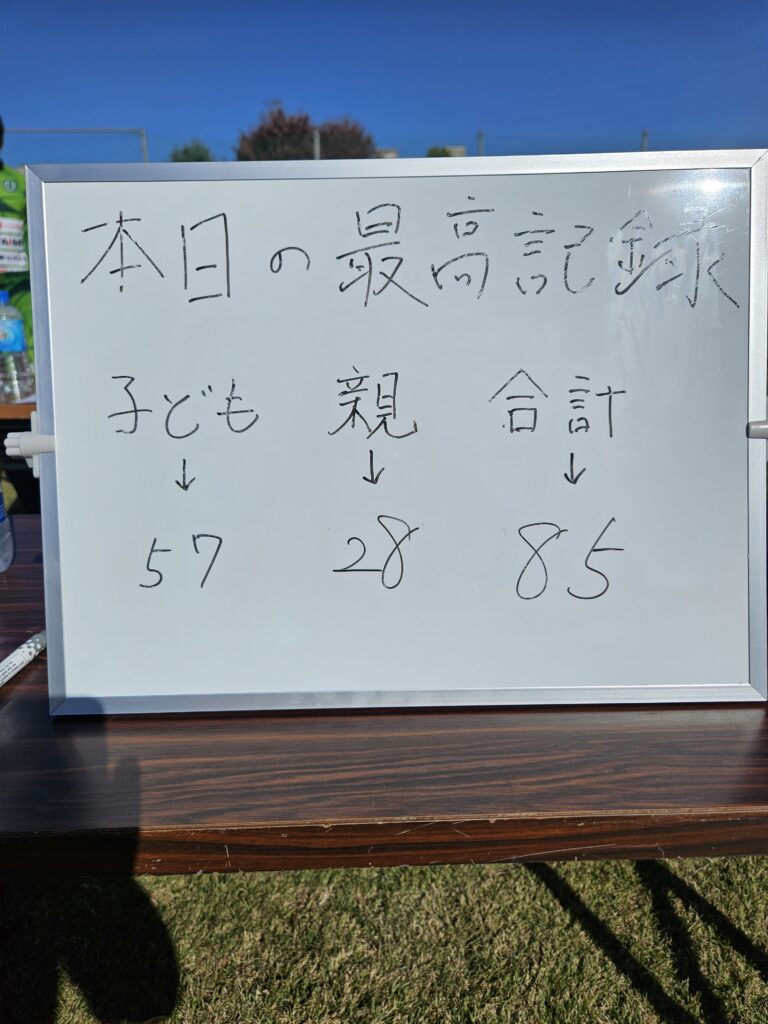 本日の最高記録
子ども 親 合計
↓ ↓ ↓
57 28 85